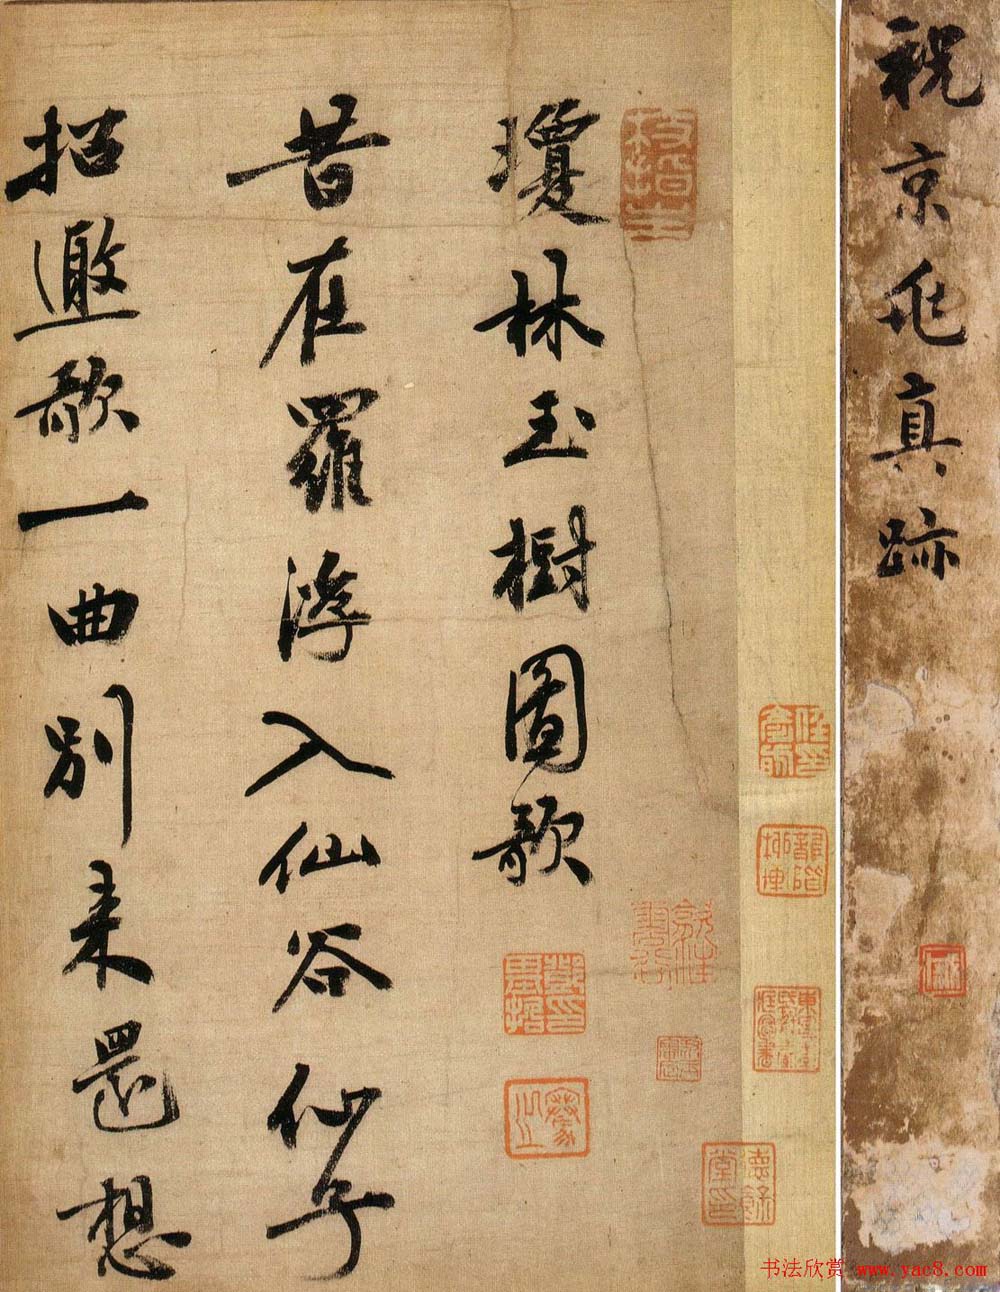 祝京兆真跡
瓊林玉樹圖歌
昔在羅浮入仙谷仙子
招邀歌一曲別來還想
枝指生
书法欣赏 www.yac8.com